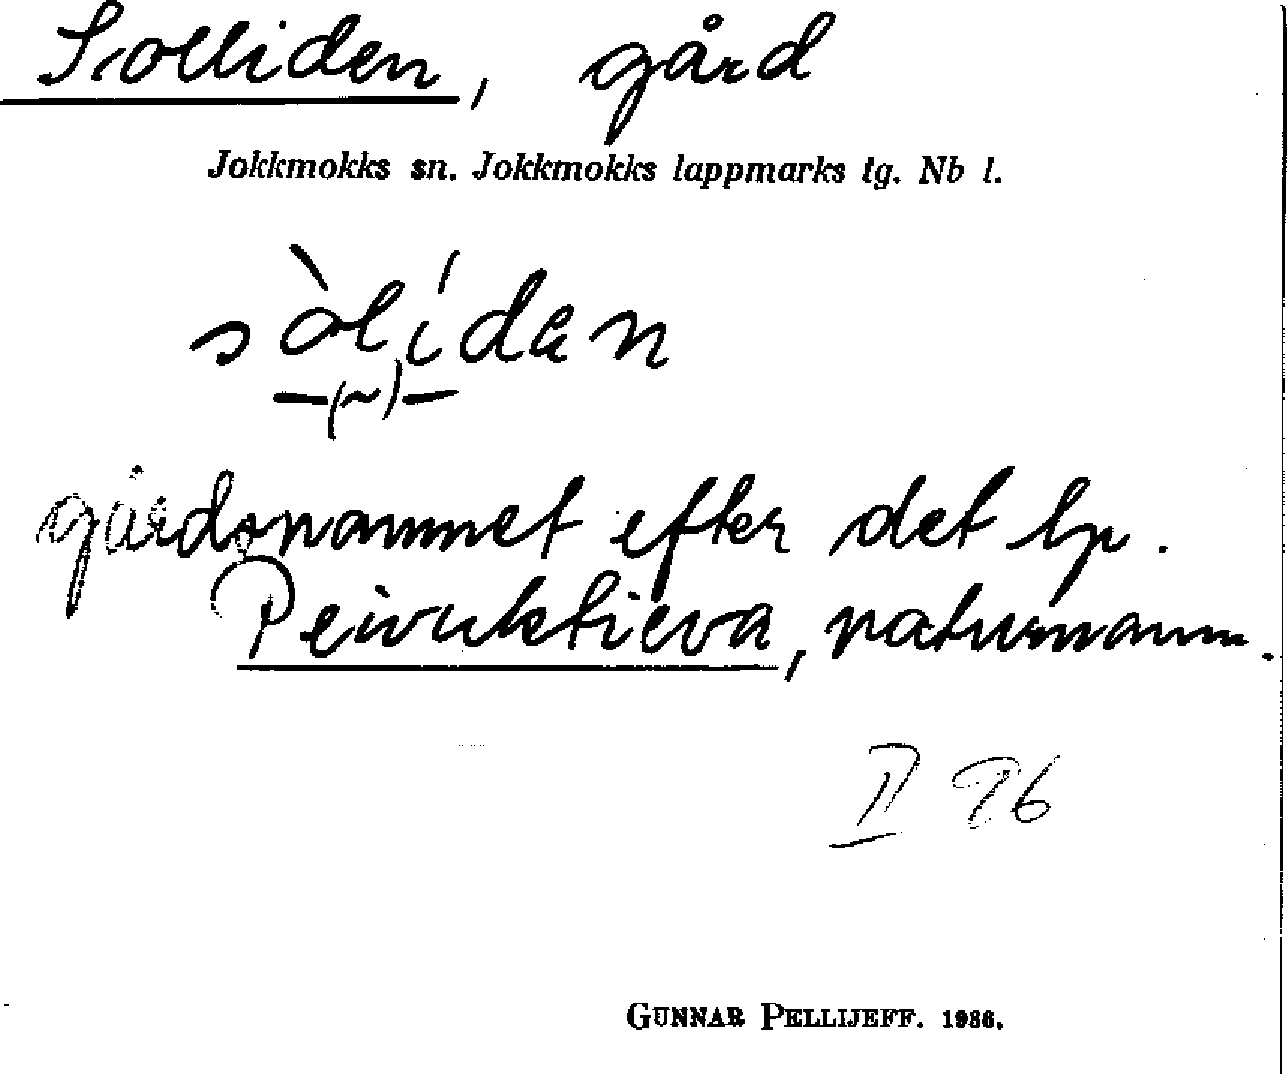 Solliden, gård
Jokkmokks sn. Jokkmokks lappmarks tg. Nb l.
sòlídan
gårdsnamnet efter det lp.
Peivuktieva, naturnamn.
II 76
GUNNAR PELLIJEFF. 1936.